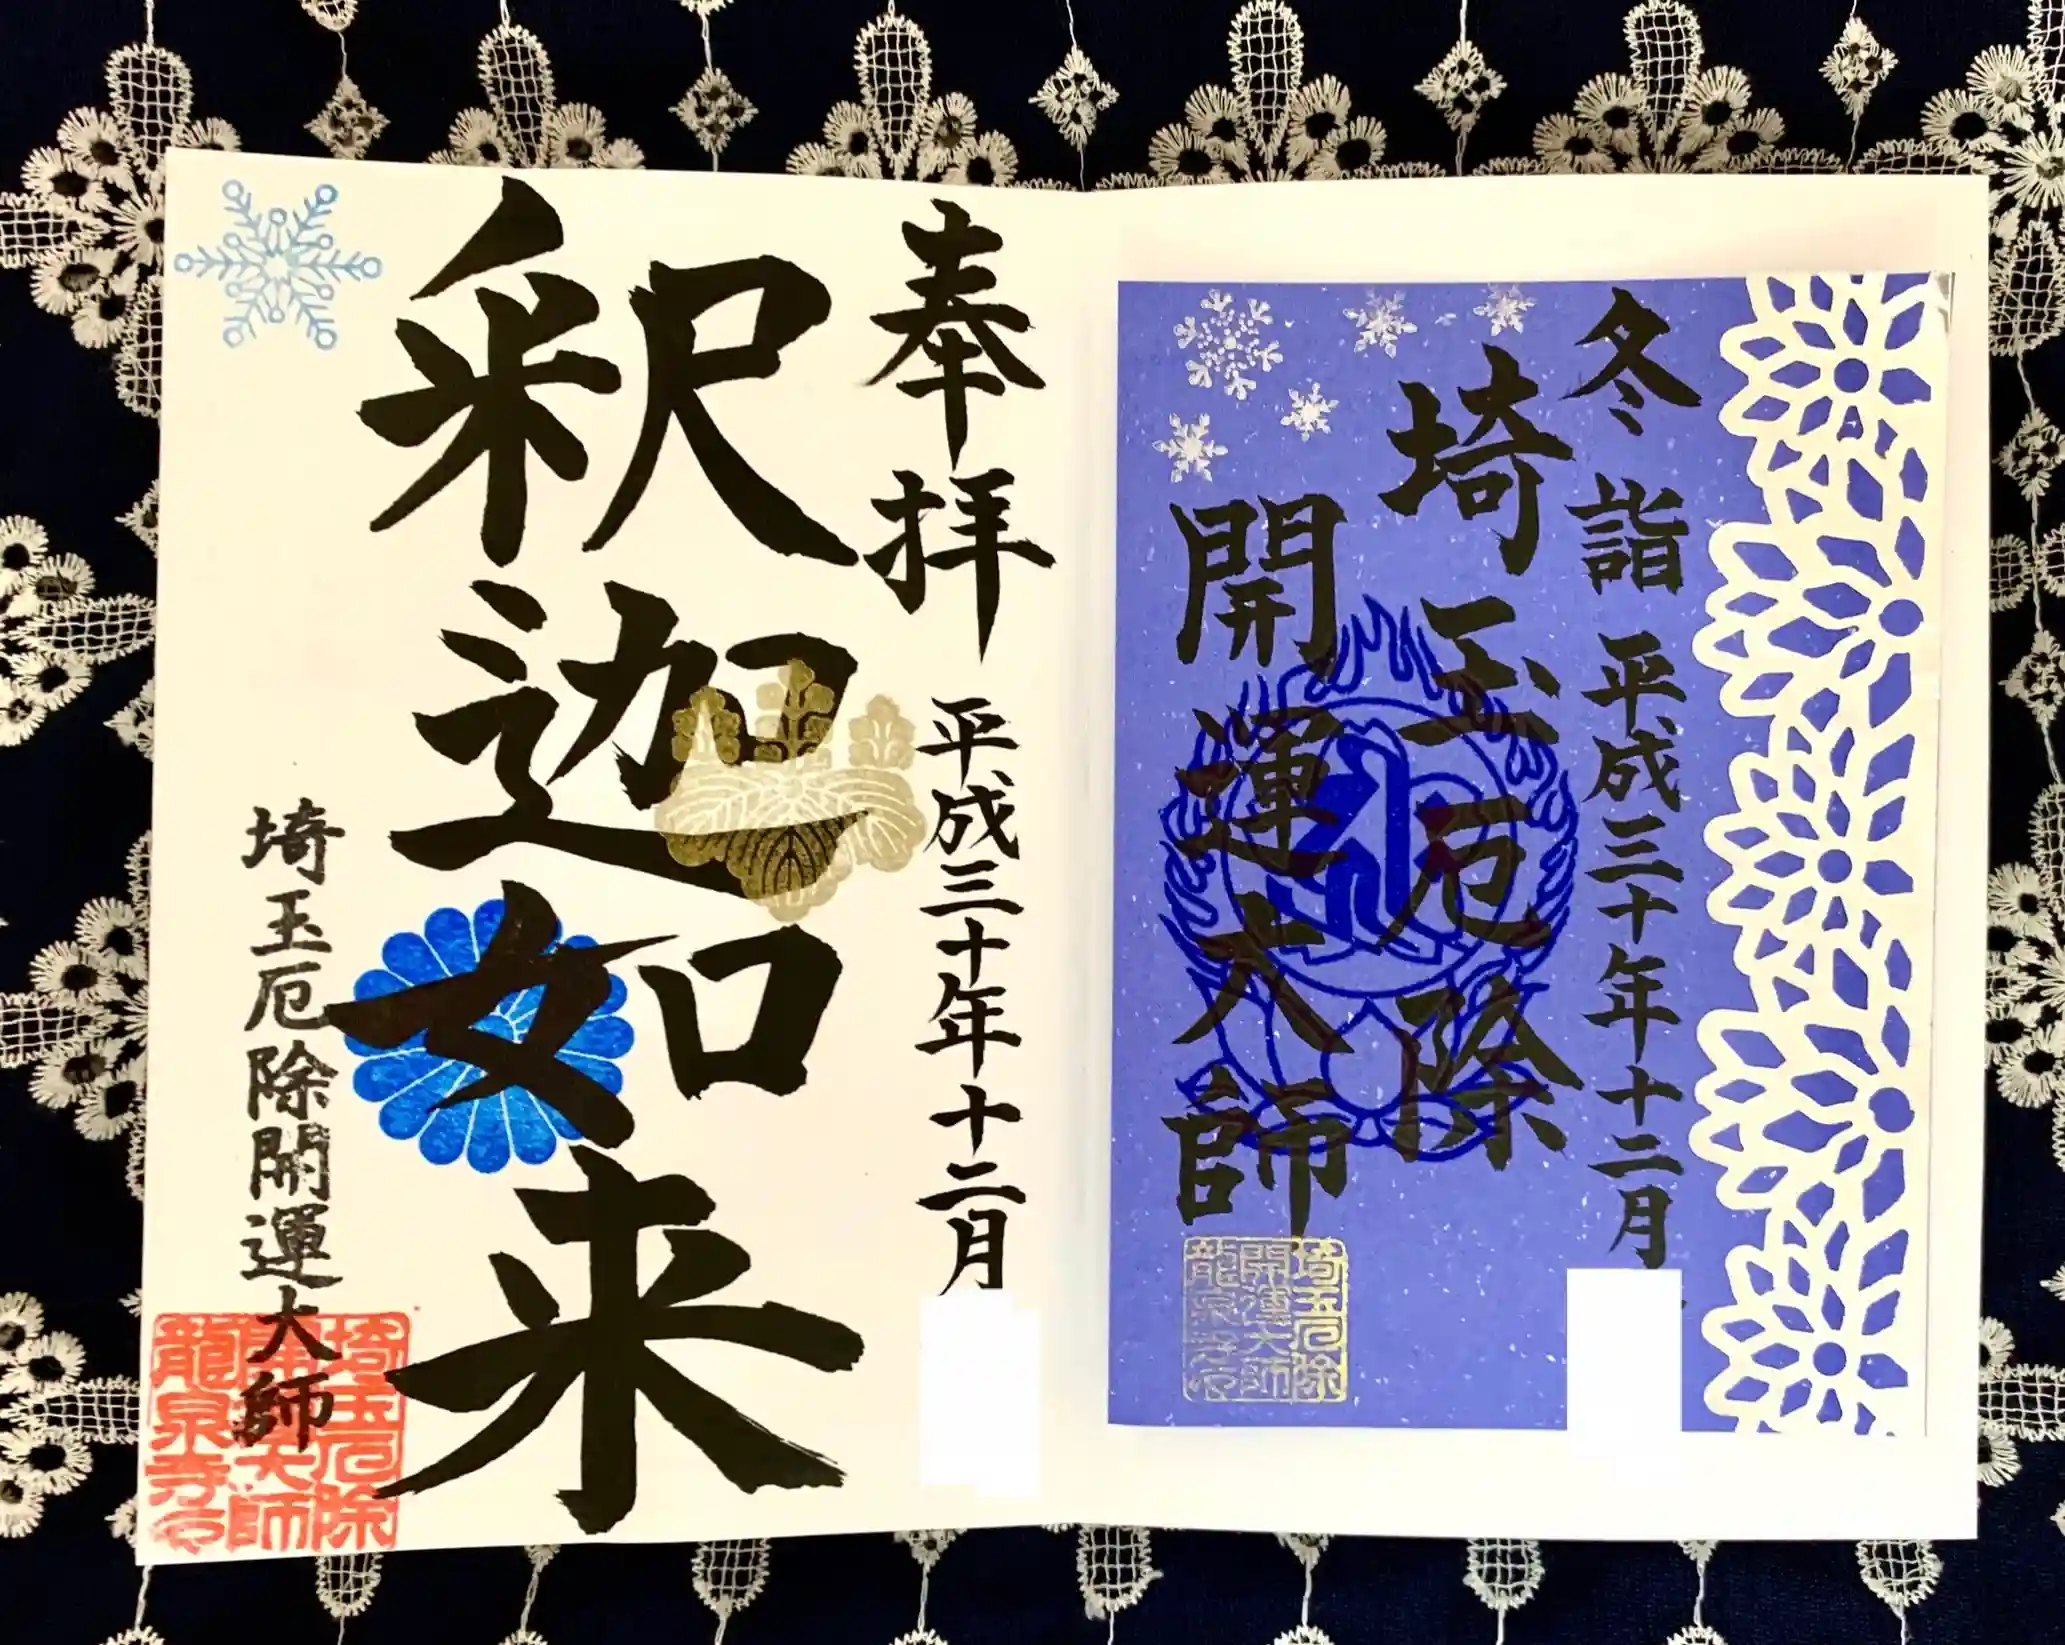 冬詣 平成三十年十二月
埼玉厄除
開運大師
埼玉厄除
開運大師
龍泉寺
奉拝 平成三十年十二月
釈迦如来
埼玉厄除開運大師
埼玉厄除
開運大師
龍泉寺